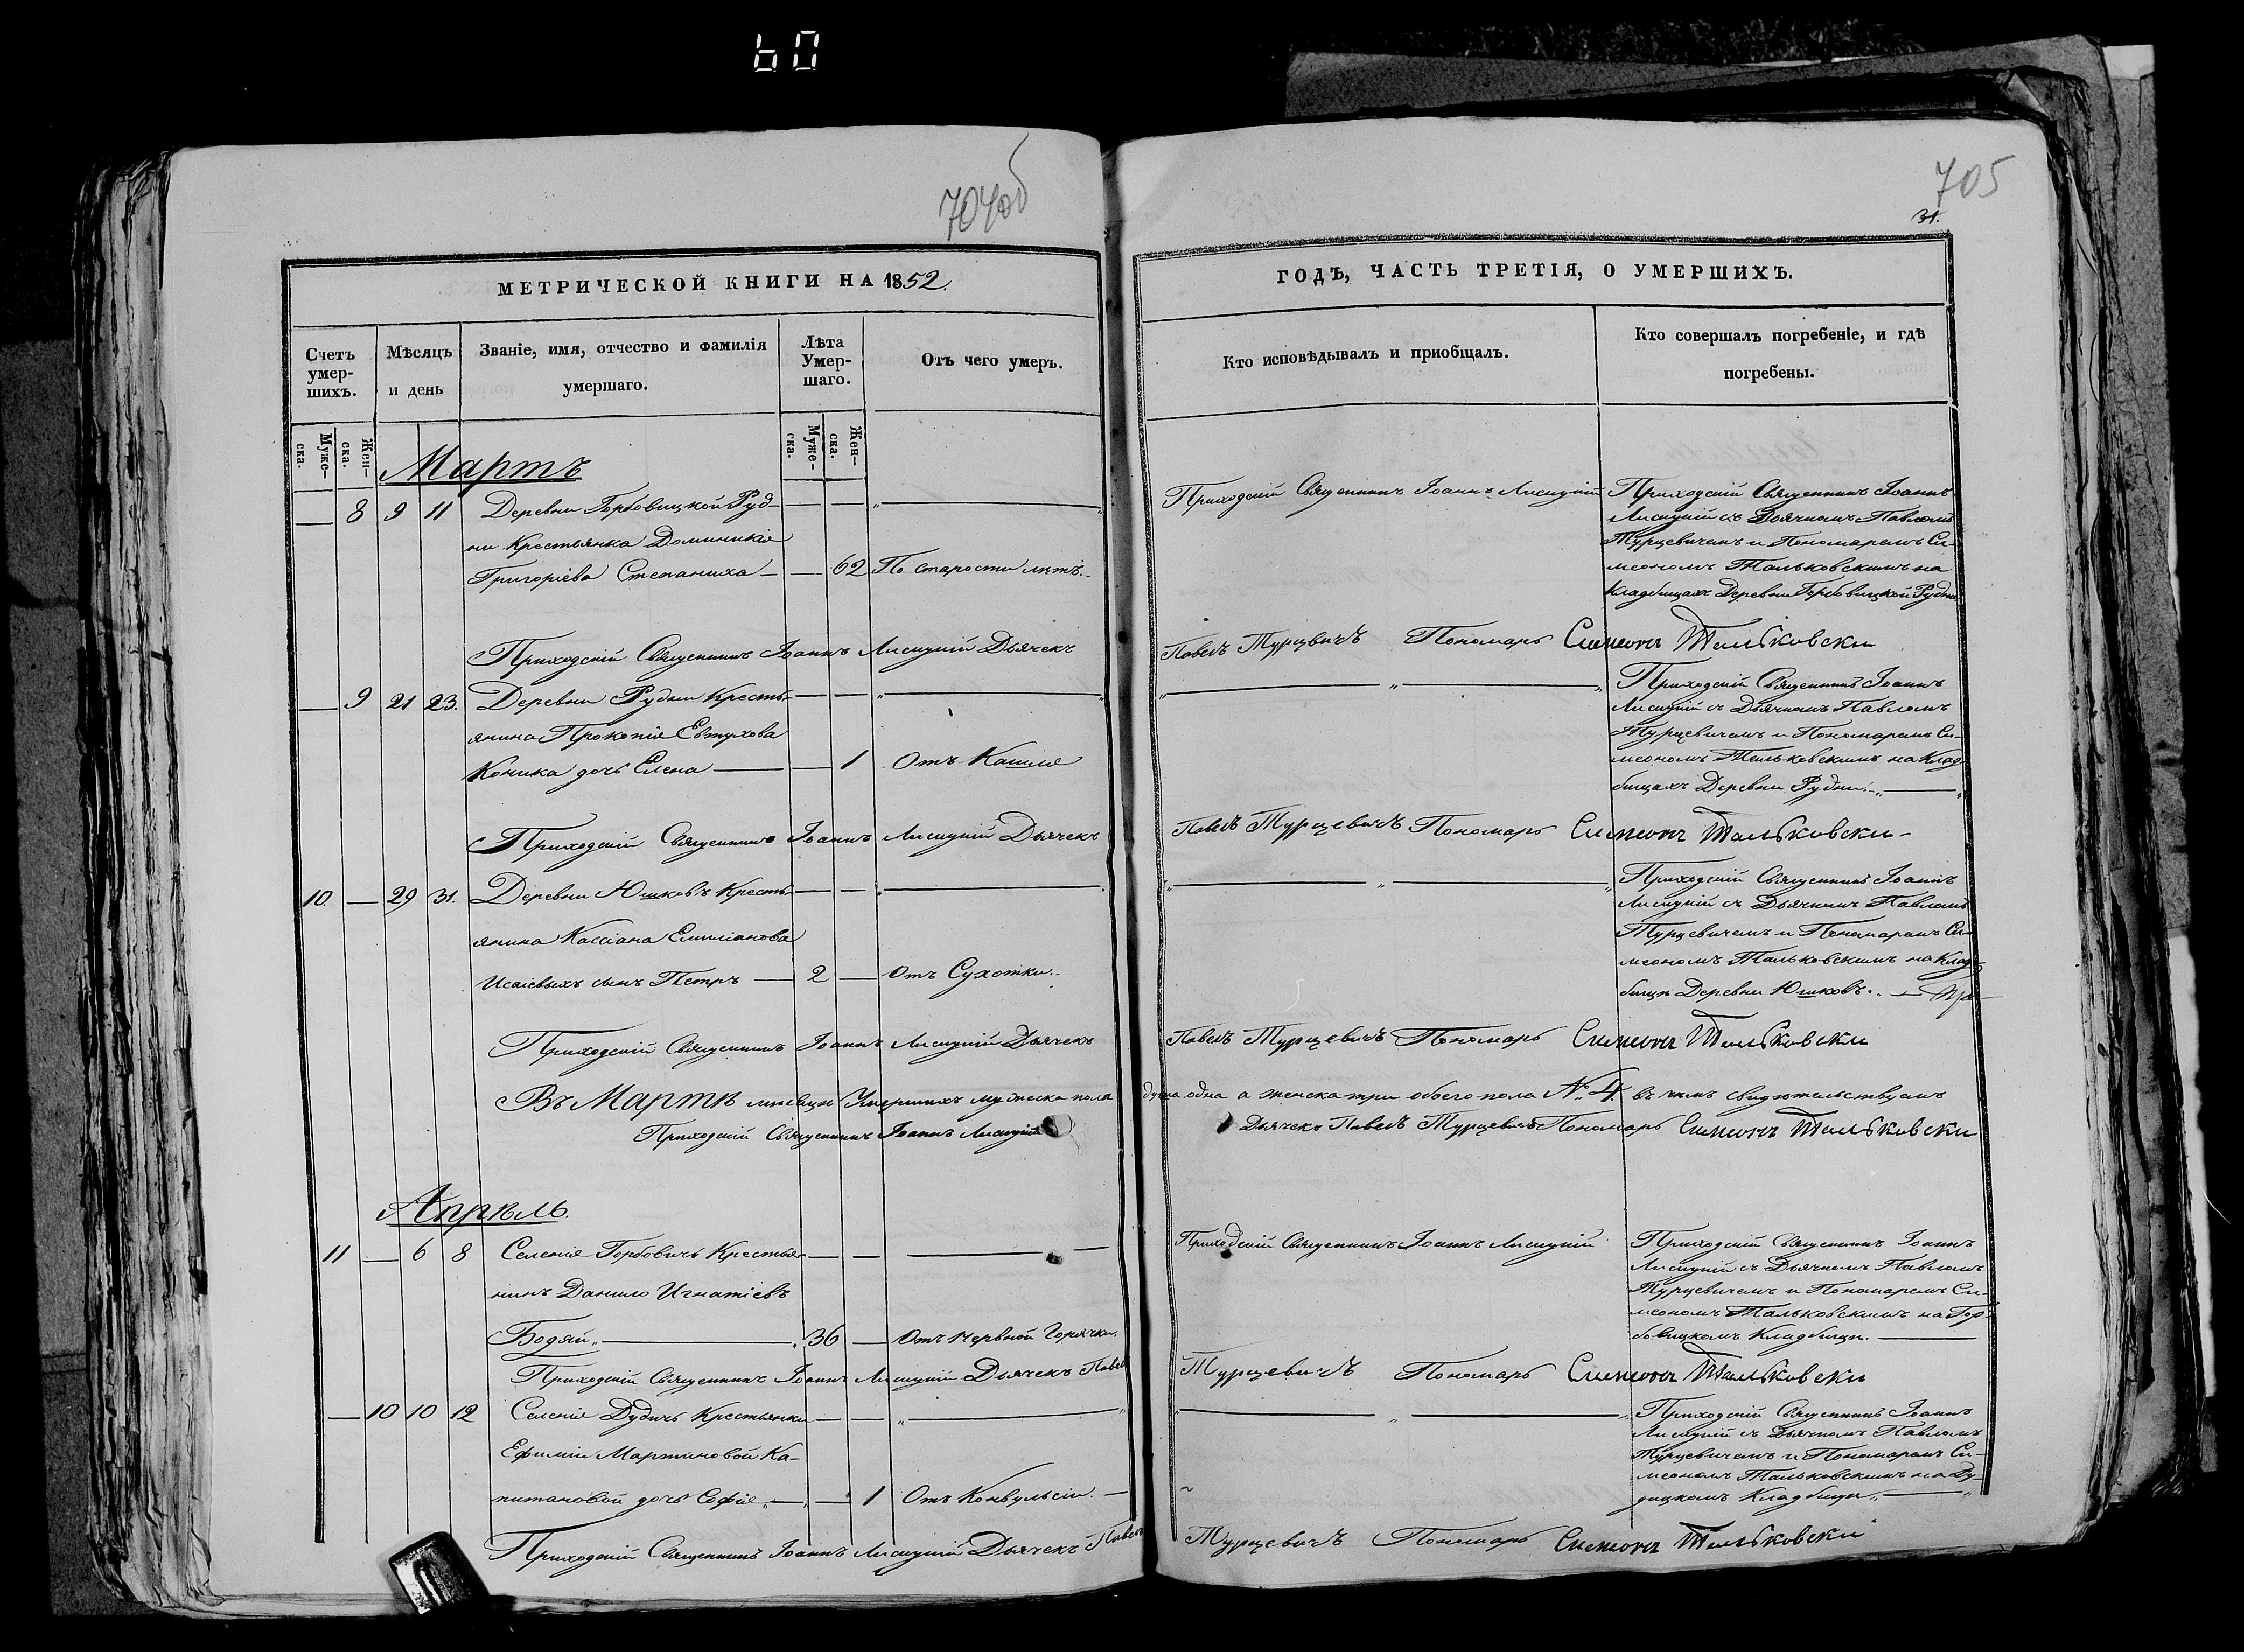 60
704об
705
31.
МЕТРИЧЕСКОЙ КНИГИ НА 1852.
Счетъ умер-шихъ.
Мѣсяцъ и день
Званіе, имя, отчество и фамилія умершаго.
Лѣта Умер-шаго.
Отъ чего умеръ.
Муже-ска.
Жен-ска.
Муже-ска.
Жен-ска.
Мартъ
— 8 9 11 Деревни Горбовицкой Руд-
ни Крестьянка Доминикія
Григоріева Степаниха — — 62 По старости лѣтъ.
Приходскій Священникъ Іоаннъ Лисицкій Дьячекъ
— 9 21 23. Деревни Рудни Кресть-
янина Прокопія Евтухова
Коника дочь Елена — — 1 Отъ Кашля
Приходскій Священникъ Іоаннъ Лисицкій Дьячекъ
10. — 29 31. Деревни Юшковъ Кресть-
янина Кассіана Емиліанова
Исаевыхъ сынъ Петръ — 2 — Отъ Сухотки.
Приходскій Священникъ Іоаннъ Лисицкій Дьячекъ
Въ Мартѣ мѣсяцѣ Умершихъ мужеска пола
Приходскій Священникъ Іоаннъ Лисицкій
Апрѣль.
11 — 6 8 Селенія Горбовичь Крестья-
нинъ Данило Игнатіевъ
Бодяй — 36 — Отъ Нервной Горячки.
Приходскій Священникъ Іоаннъ Лисицкій Дьячекъ Павелъ
— 10 10 12 Селенія Дудичь Крестьянки
Ефиміи Мартиновой Ка-
питановой дочь Софія — — 1 Отъ Конвульсіи. —
Приходскій Священникъ Іоаннъ Лисицкій Дьячекъ Павелъ
ГОДЪ, ЧАСТЬ ТРЕТІЯ, О УМЕРШИХЪ.
Кто исповѣдывалъ и пріобщалъ.
Кто совершалъ погребеніе, и гдѣ погребены.
Приходскій Священникъ Іоаннъ Лисицкій
Приходскій Священникъ Іоаннъ
Лисицкій съ Дьячкомъ Павломъ
Турцевичемъ и Пономаремъ Си-
меономъ Тальковскимъ на
кладбищахъ Деревни Горбовицкой Рудни
Павелъ Турцевичъ Пономарь Симеонъ Тальковски
Приходскій Священникъ Іоаннъ
Лисицкій съ Дьячкомъ Павломъ
Турцевичемъ и Пономаремъ Си-
меономъ Тальковскимъ на Клад-
бищахъ Деревни Рудни.
Павелъ Турцевичъ Пономарь Симеонъ Тальковски
Приходскій Священникъ Іоаннъ
Лисицкій съ Дьячкомъ Павломъ
Турцевичемъ и Пономаремъ Си-
меономъ Тальковскимъ на Клад-
бищѣ Деревни Юшковъ.
Павелъ Турцевичъ Пономарь Симеонъ Тальковски
душа одна а женска три обоего пола №. 4. въ чемъ свидѣтельствуемъ
Дьячекъ Павелъ Турцевичъ Пономарь Симеонъ Тальковски
Приходскій Священникъ Іоаннъ Лисицкій
Приходскій Священникъ Іоаннъ
Лисицкій съ Дьячкомъ Павломъ
Турцевичемъ и Пономаремъ Си-
меономъ Тальковскимъ на Гор-
бовицкомъ Кладбищѣ.
Турцевичъ Пономарь Симеонъ Тальковски
Приходскій Священникъ Іоаннъ
Лисицкій съ Дьячкомъ Павломъ
Турцевичемъ и Пономаремъ Си-
меономъ Тальковскимъ на Ду-
дицкомъ Кладбищѣ.
Турцевичъ Пономарь Симеонъ Тальковски